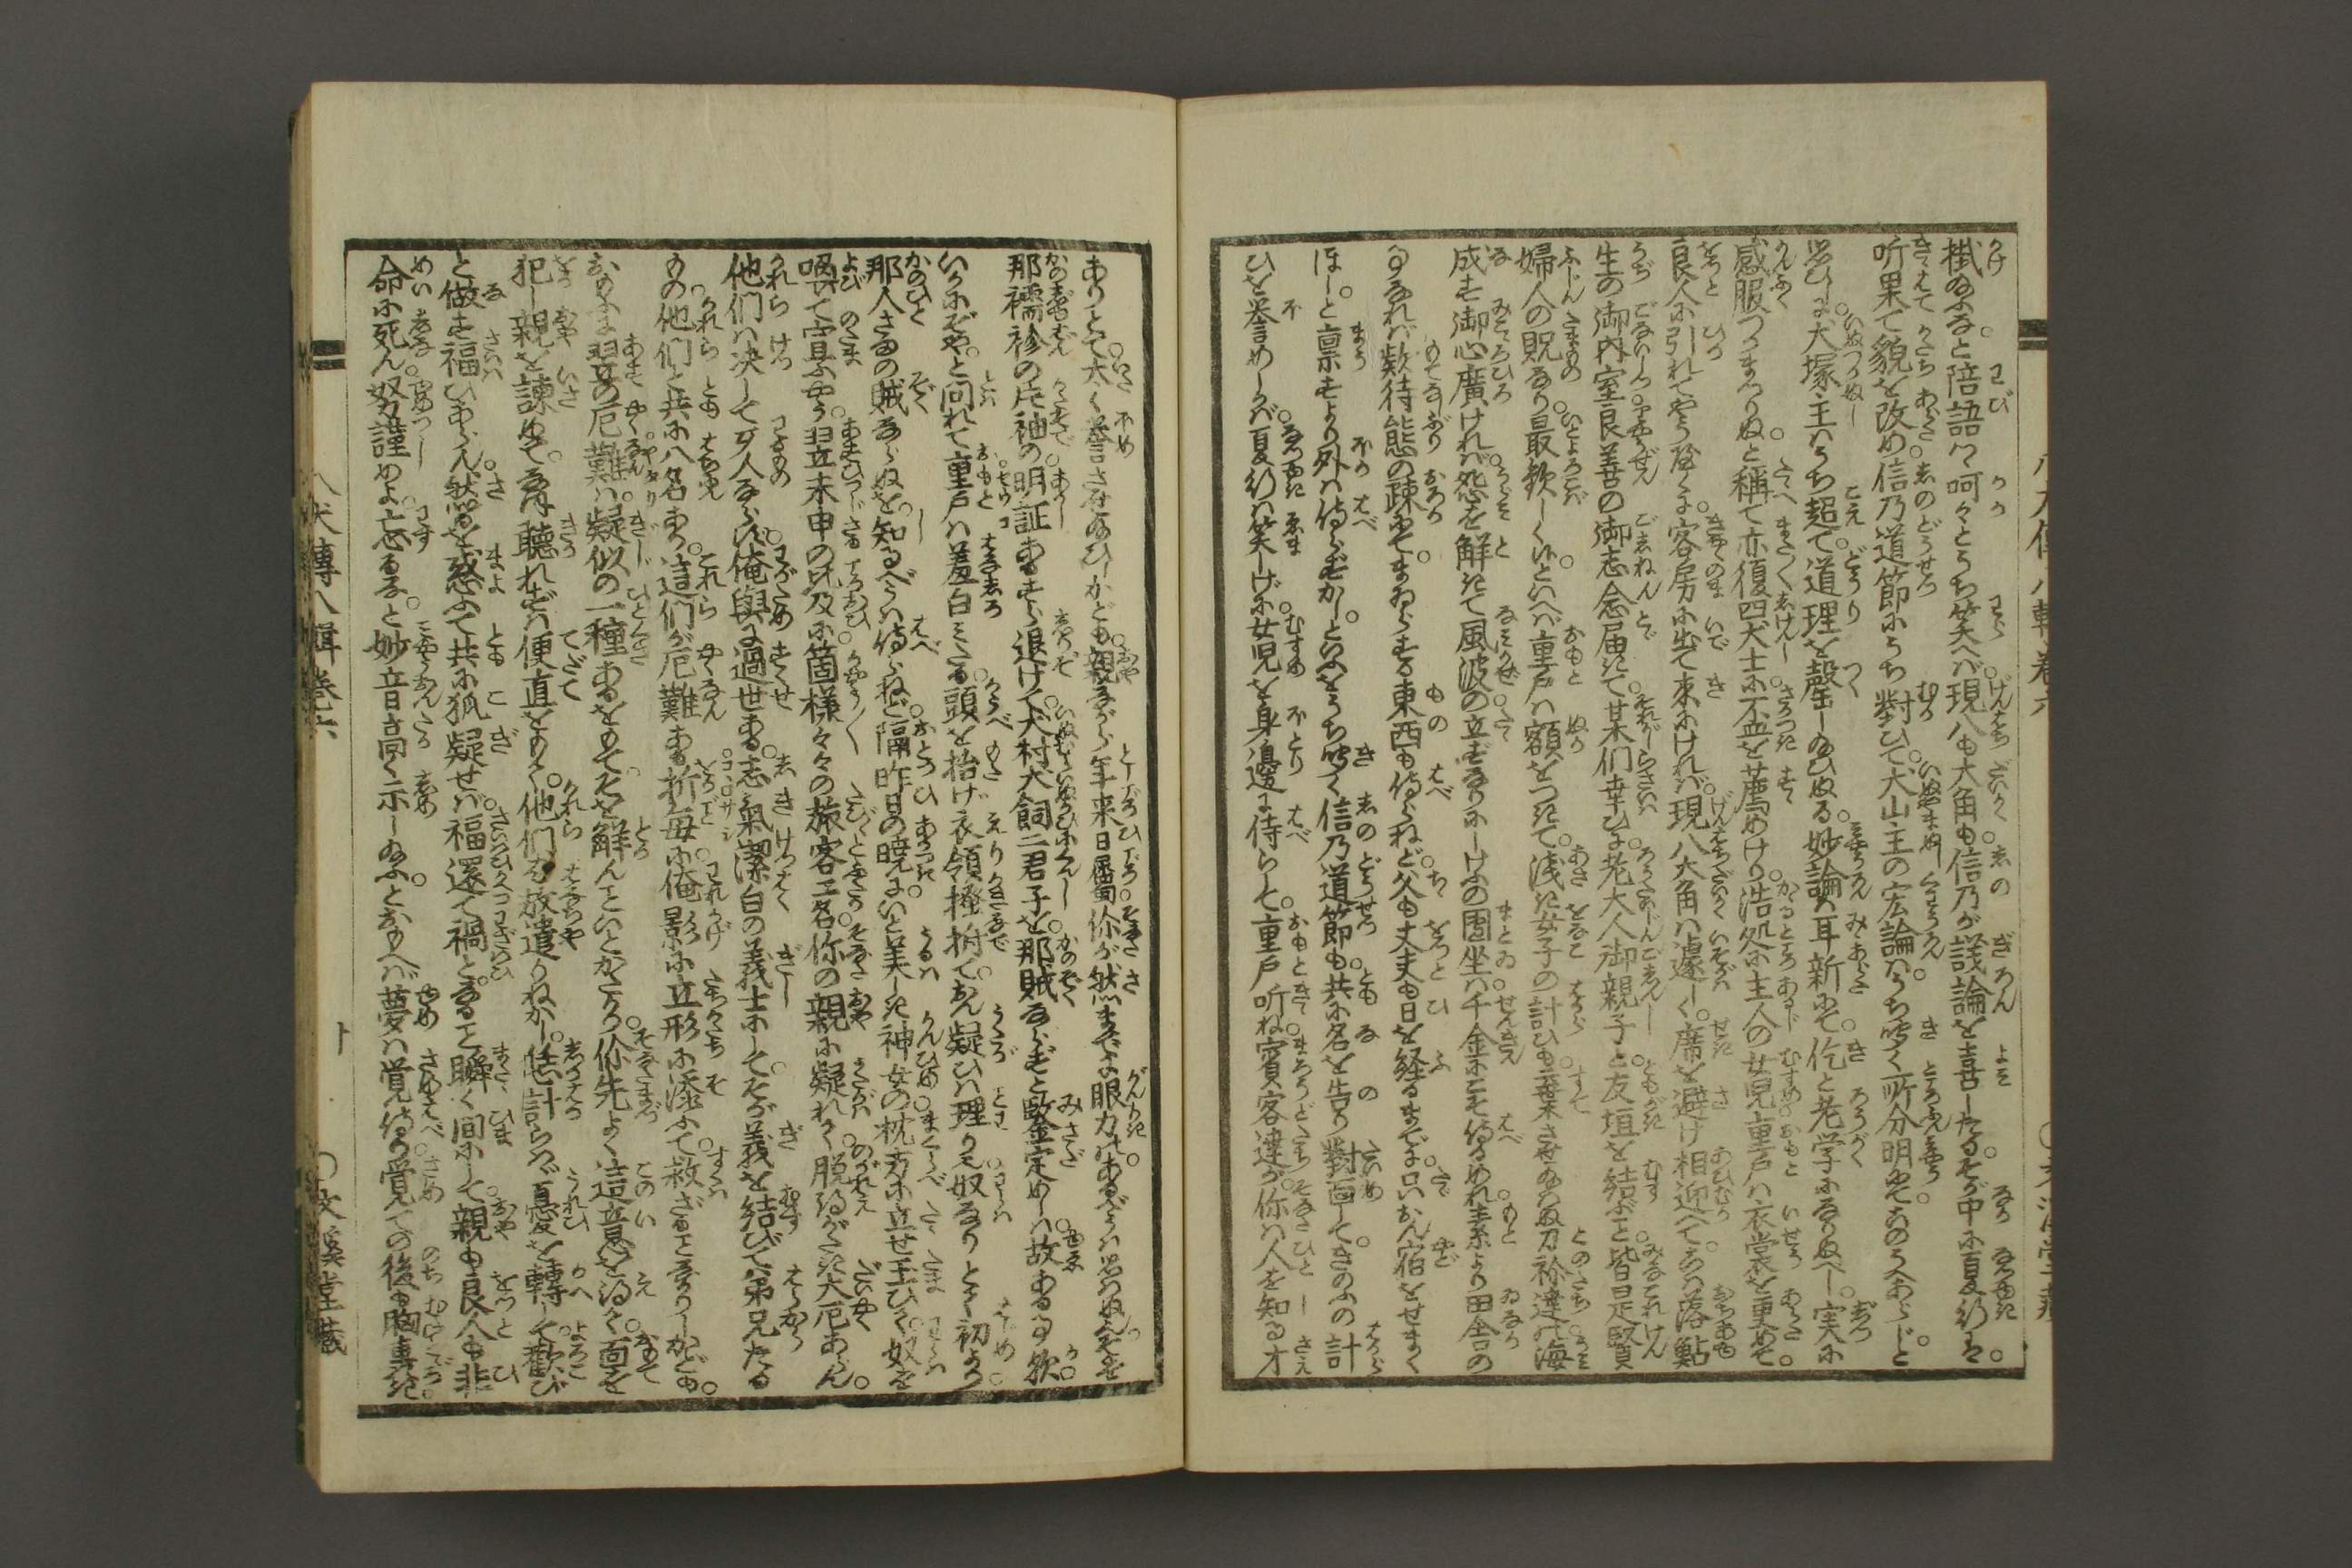 掛給ふなと陪語バ呵々とうち笑へバ現八も大角も信乃が議論を喜したる。そが中に夏行は。
听果て貌を改め信乃道節にうち對ひて。犬山主の宏論ハうち聴く所分明にて。あのうへあらじと
思ひしに犬塚主ハうち超て。道理を盡し給ひぬる。妙論ハ耳新にて。仡と老学になりぬべし。実に
感服つかまつりぬと稱て亦復四犬士に不盃を薦めけり。浩処に主人の女児重戸ハ衣裳を更めて。
良人に引れてやう命に。客房に出て來にけれバ。現八大角ハ遽しく。席を避け相迎へて。こハ落鮎
生の御内室良善の御志念届きて。某们幸ひに老大人御親子と友垣を結ぶこと皆是賢
婦人の貺なり最歓しく候といへバ重戸ハ額をつきて。浅き女子の計ひも棄させ給ハぬ刀祢達の海
成す御心廣けれバ。怨を解きて風波の立ずなりにしけふの團坐ハ千金にこそ侍るめれ素より田舎の
事なれバ款待態の疎にて。まゐらする東西も侍らねど。父も丈夫も日を経るまでに。只いかん宿をせまく
ほしと禀すより外ハ侍らずかし。といふをうち聴く信乃道節も。共に名を告り對面して。きのふの計
ひを誉めしかバ。夏行ハ笑しげに女児を身邊に侍らして。重戸听ね賓客達が。你ハ人を知る才
ありとて太く誉させ給ひしかども。親ながら年来日属你が然までに眼力はあるべうハ思ハぬを
那襦袢の片袖の明証あるすら退けて。犬村犬飼二君子を。那賊ならずと堅定めしハ故ある事歟
いかにぞや。と問れて重戸ハ羞白みたる。頭を抬げ衣領掻拊て。おん疑ひハ理りに奴なりとて初より
那人さまの賊ならぬを。知るべうハ侍らねど。隔昨日の暁に。いと美しき神女の枕方に立せ玉ひて。奴を
喚て宣ふやう。翌立未申の呎及に箇様々々の旅客二名。你の親に疑れて脱得がたき大厄あらん
他們ハ決して歹人ならず。俺與に過世ある。志氣潔白の義士にして。そが義を結びて弟兄たる
もの他們と共に八名あり。這們が厄難ある折毎に。俺影に立形に添ふて。救ざることなかりしかども。
おのれは翌の厄難ハ。疑似の一種あるをもて。そを解んこといとかたかり。你先よく這意を得て。面を
犯し親を諫めて。なほ聴れずハ便直をもて。他們を放遣りねかし。恁計らハゞ憂を轉して。歓び
と做す福ひあらん。然るを惑ふて共に狐疑せバ。福還て禍となること瞬く間にして親も良人も非
命に死ん。努謹めよ忘るなと妙音高く示し給ふと。おもへバ夢ハ覚侍り。覚ての後も胸轟き
八犬傳八輯巻六
○文溪堂藏